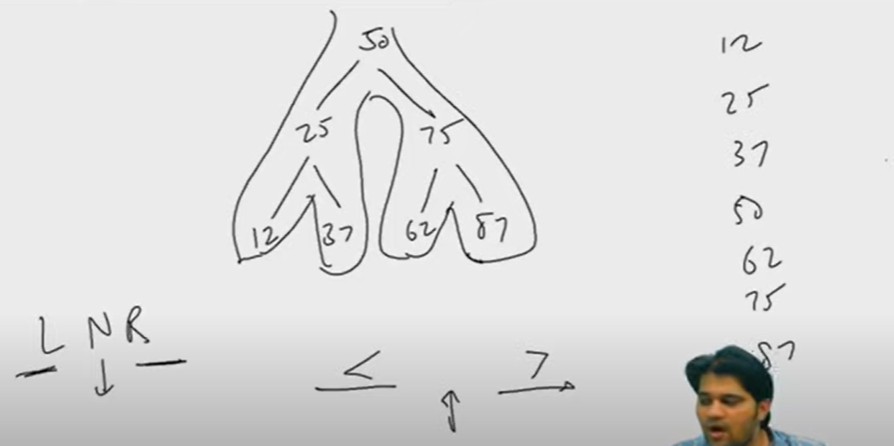 50
25 75
12 37 62 87
12
25
37
50
62
75
87
L N R
< >